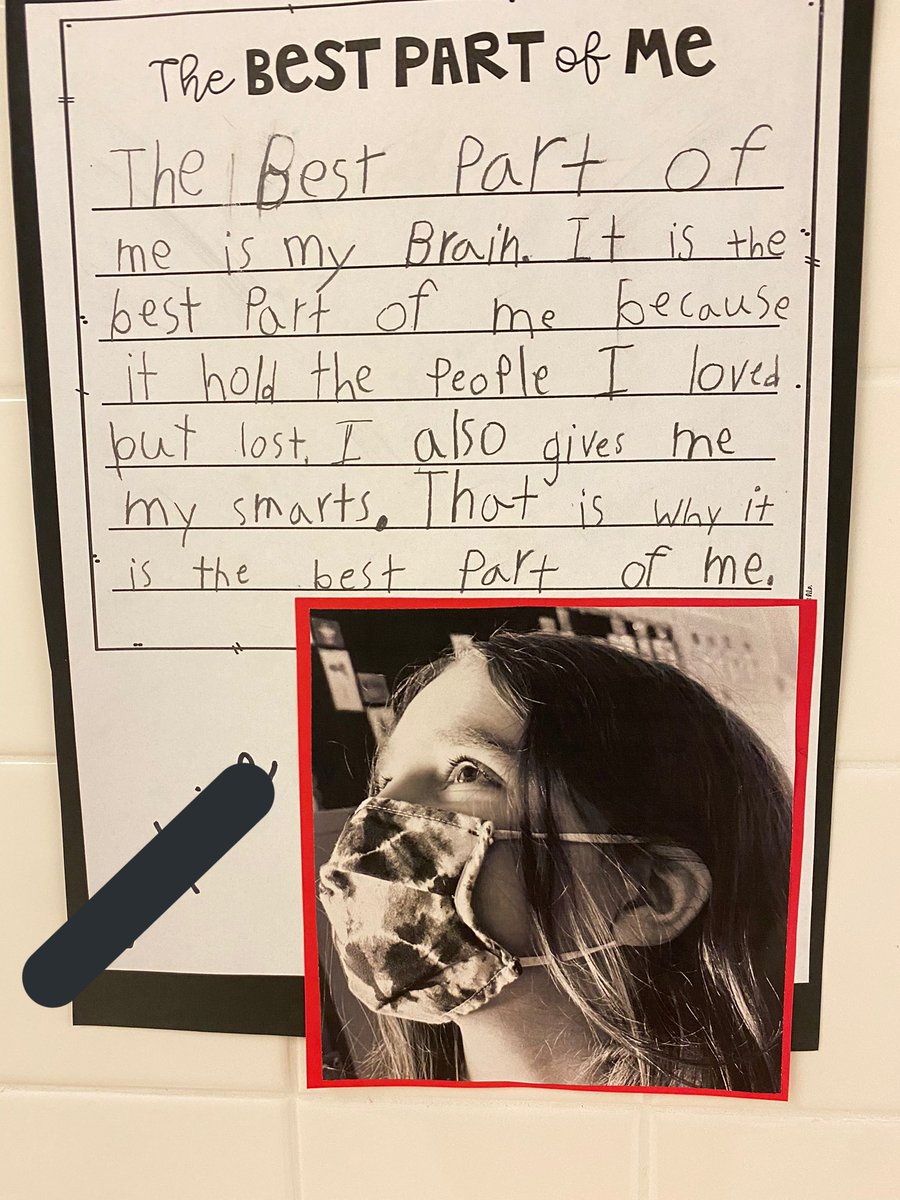 The BEST PART of ME
The Best Part of
me is my Brain. It is the
best Part of me because
it hold the people I loved
but lost. I also gives me
my smarts. That is why it
is the best Part of me.